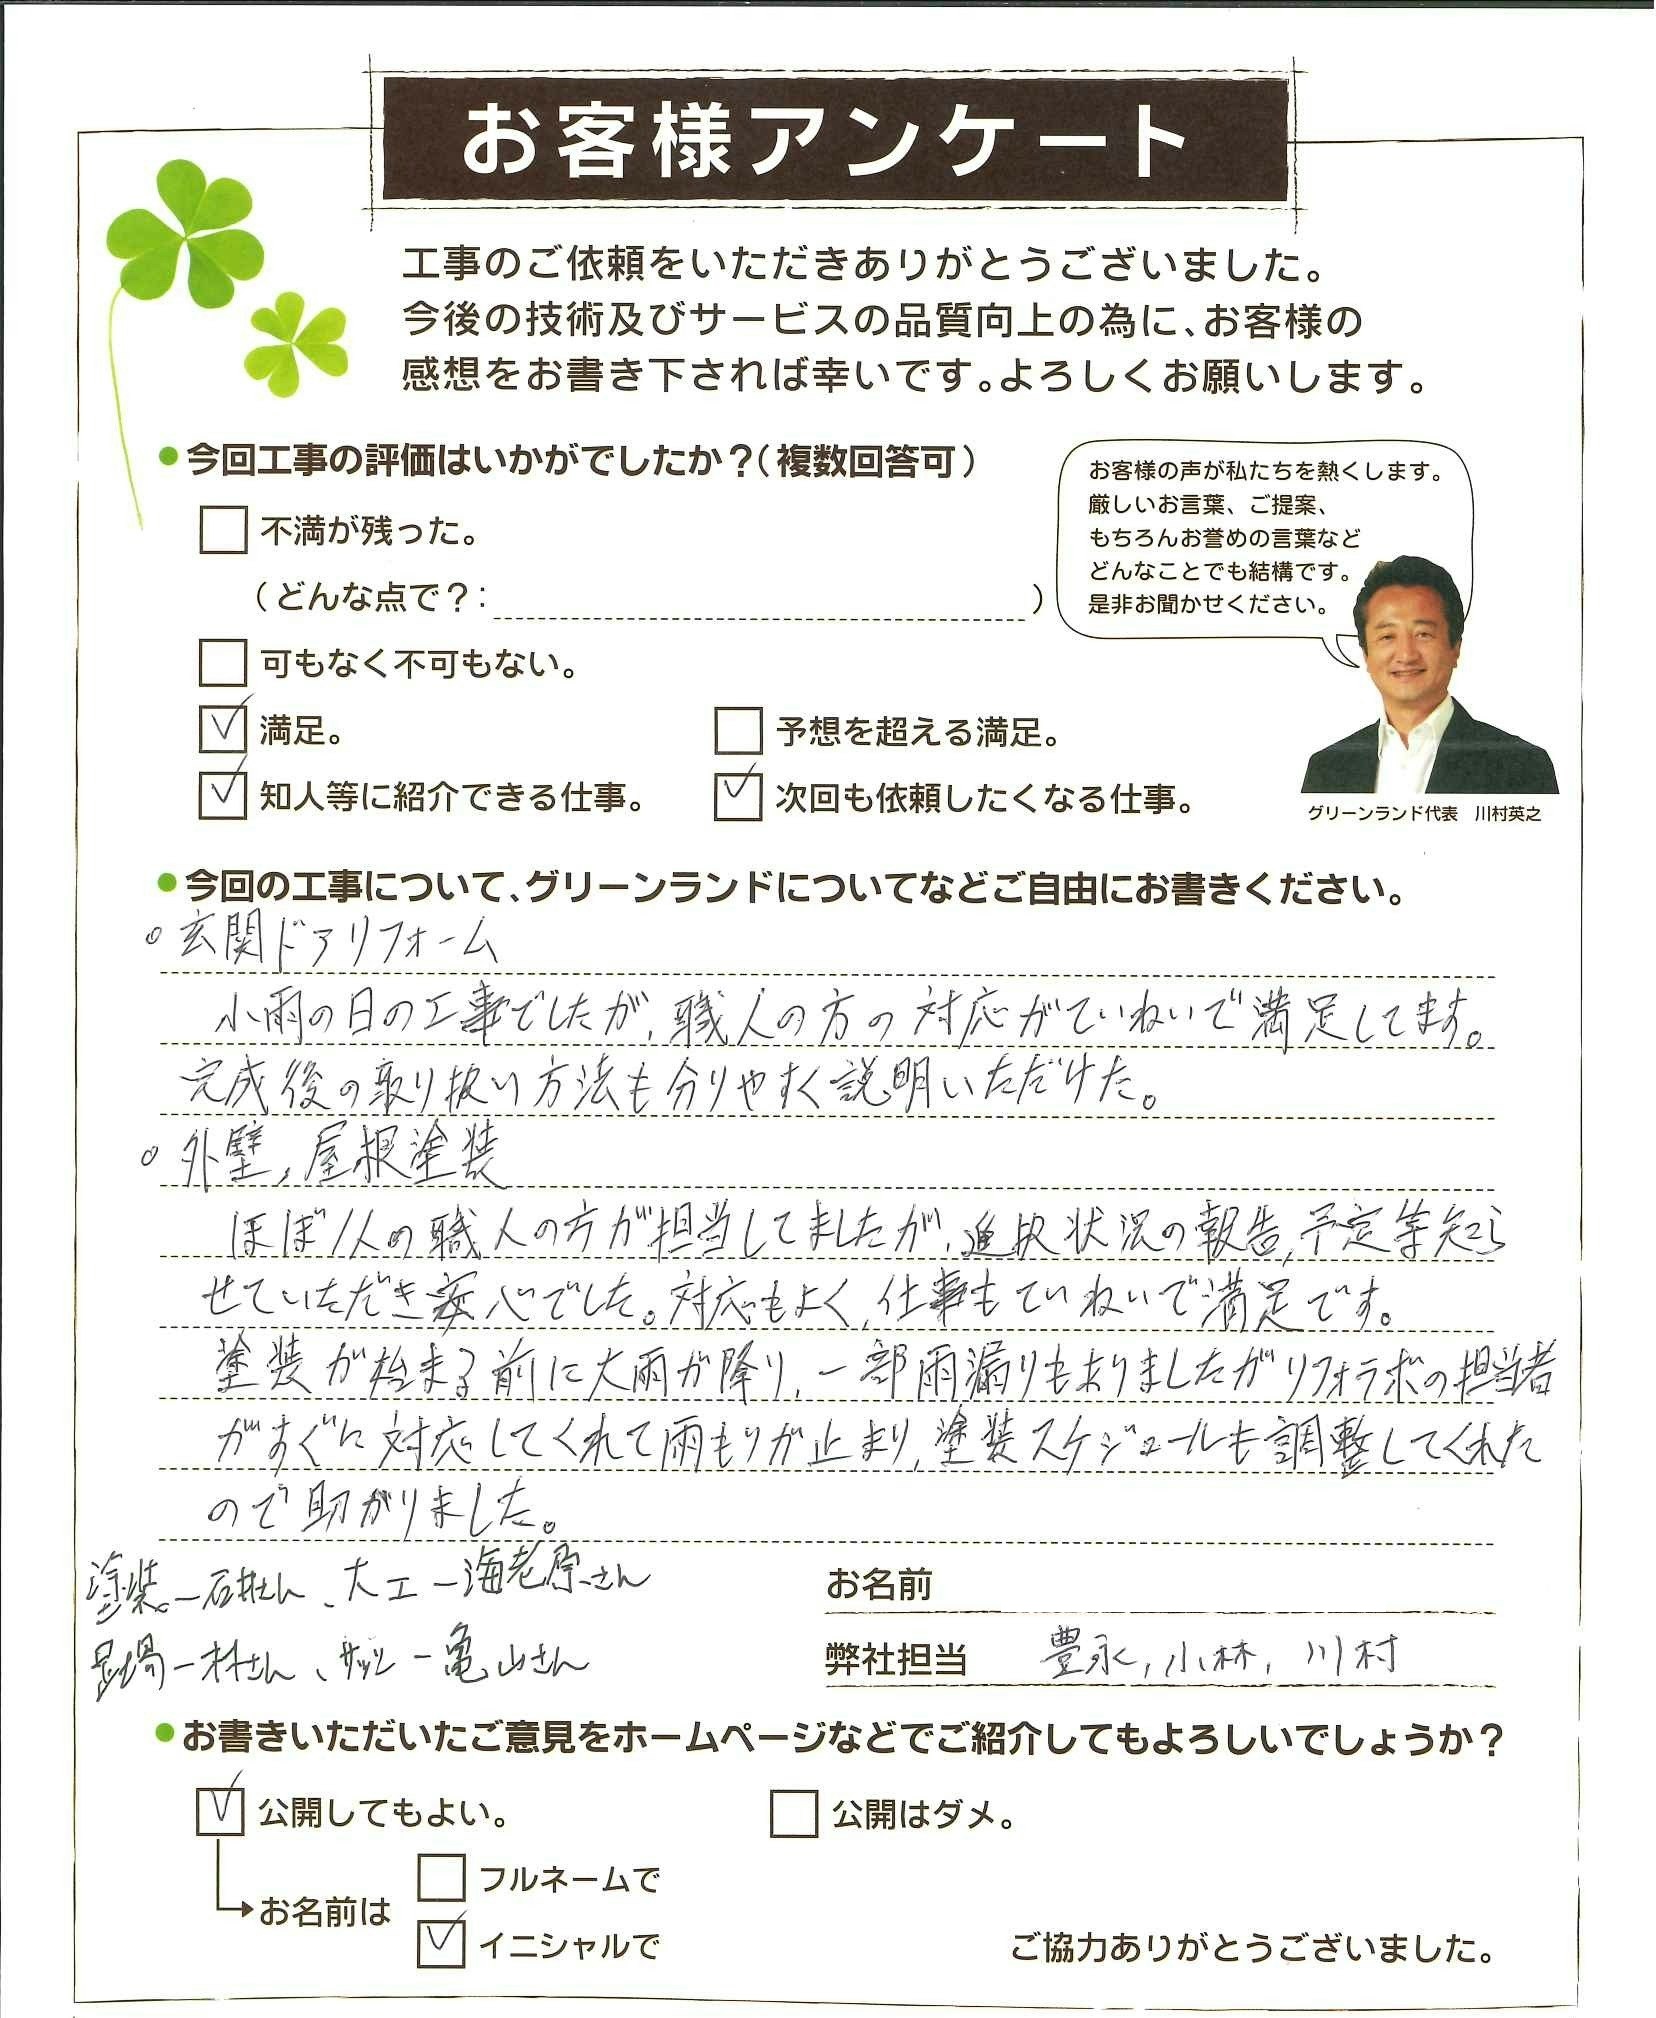 お客様アンケート
工事のご依頼をいただきありがとうございました。
今後の技術及びサービスの品質向上の為に、お客様の
感想をお書き下されば幸いです。よろしくお願いします。
●今回工事の評価はいかがでしたか？（複数回答可）
不満が残った。
（どんな点で？：　）
可もなく不可もない。
満足。
予想を超える満足。
知人等に紹介できる仕事。
次回も依頼したくなる仕事。
お客様の声が私たちを熱くします。
厳しいお言葉、ご提案、
もちろんお誉めの言葉など
どんなことでも結構です。
是非お聞かせください。
グリーンランド代表　川村英之
●今回の工事について、グリーンランドについてなどご自由にお書きください。
。玄関ドアリフォーム
小雨の日の工事でしたが、職人の方の対応がていねいで満足してます。
完成後の取り扱い方法も分りやすく説明いただけた。
。外壁、屋根塗装
ほぼ1人の職人の方が担当してましたが、進捗状況の報告、予定等知ら
せていただき安心でした。対応もよく、仕事もていねいで満足です。
塗装が始まる前に大雨が降り、一部雨漏りもありましたがリフォラボの担当者
がすぐに対応してくれて雨もりが止まり、塗装スケジュールも調整してくれた
ので助かりました。
塗装ー石井さん、大工ー海老原さん
足場ー木村さん、サッシー亀山さん
お名前
弊社担当　豊永、小林、川村
●お書きいただいたご意見をホームページなどでご紹介してもよろしいでしょうか？
公開してもよい。
公開はダメ。
お名前は
フルネームで
イニシャルで
ご協力ありがとうございました。